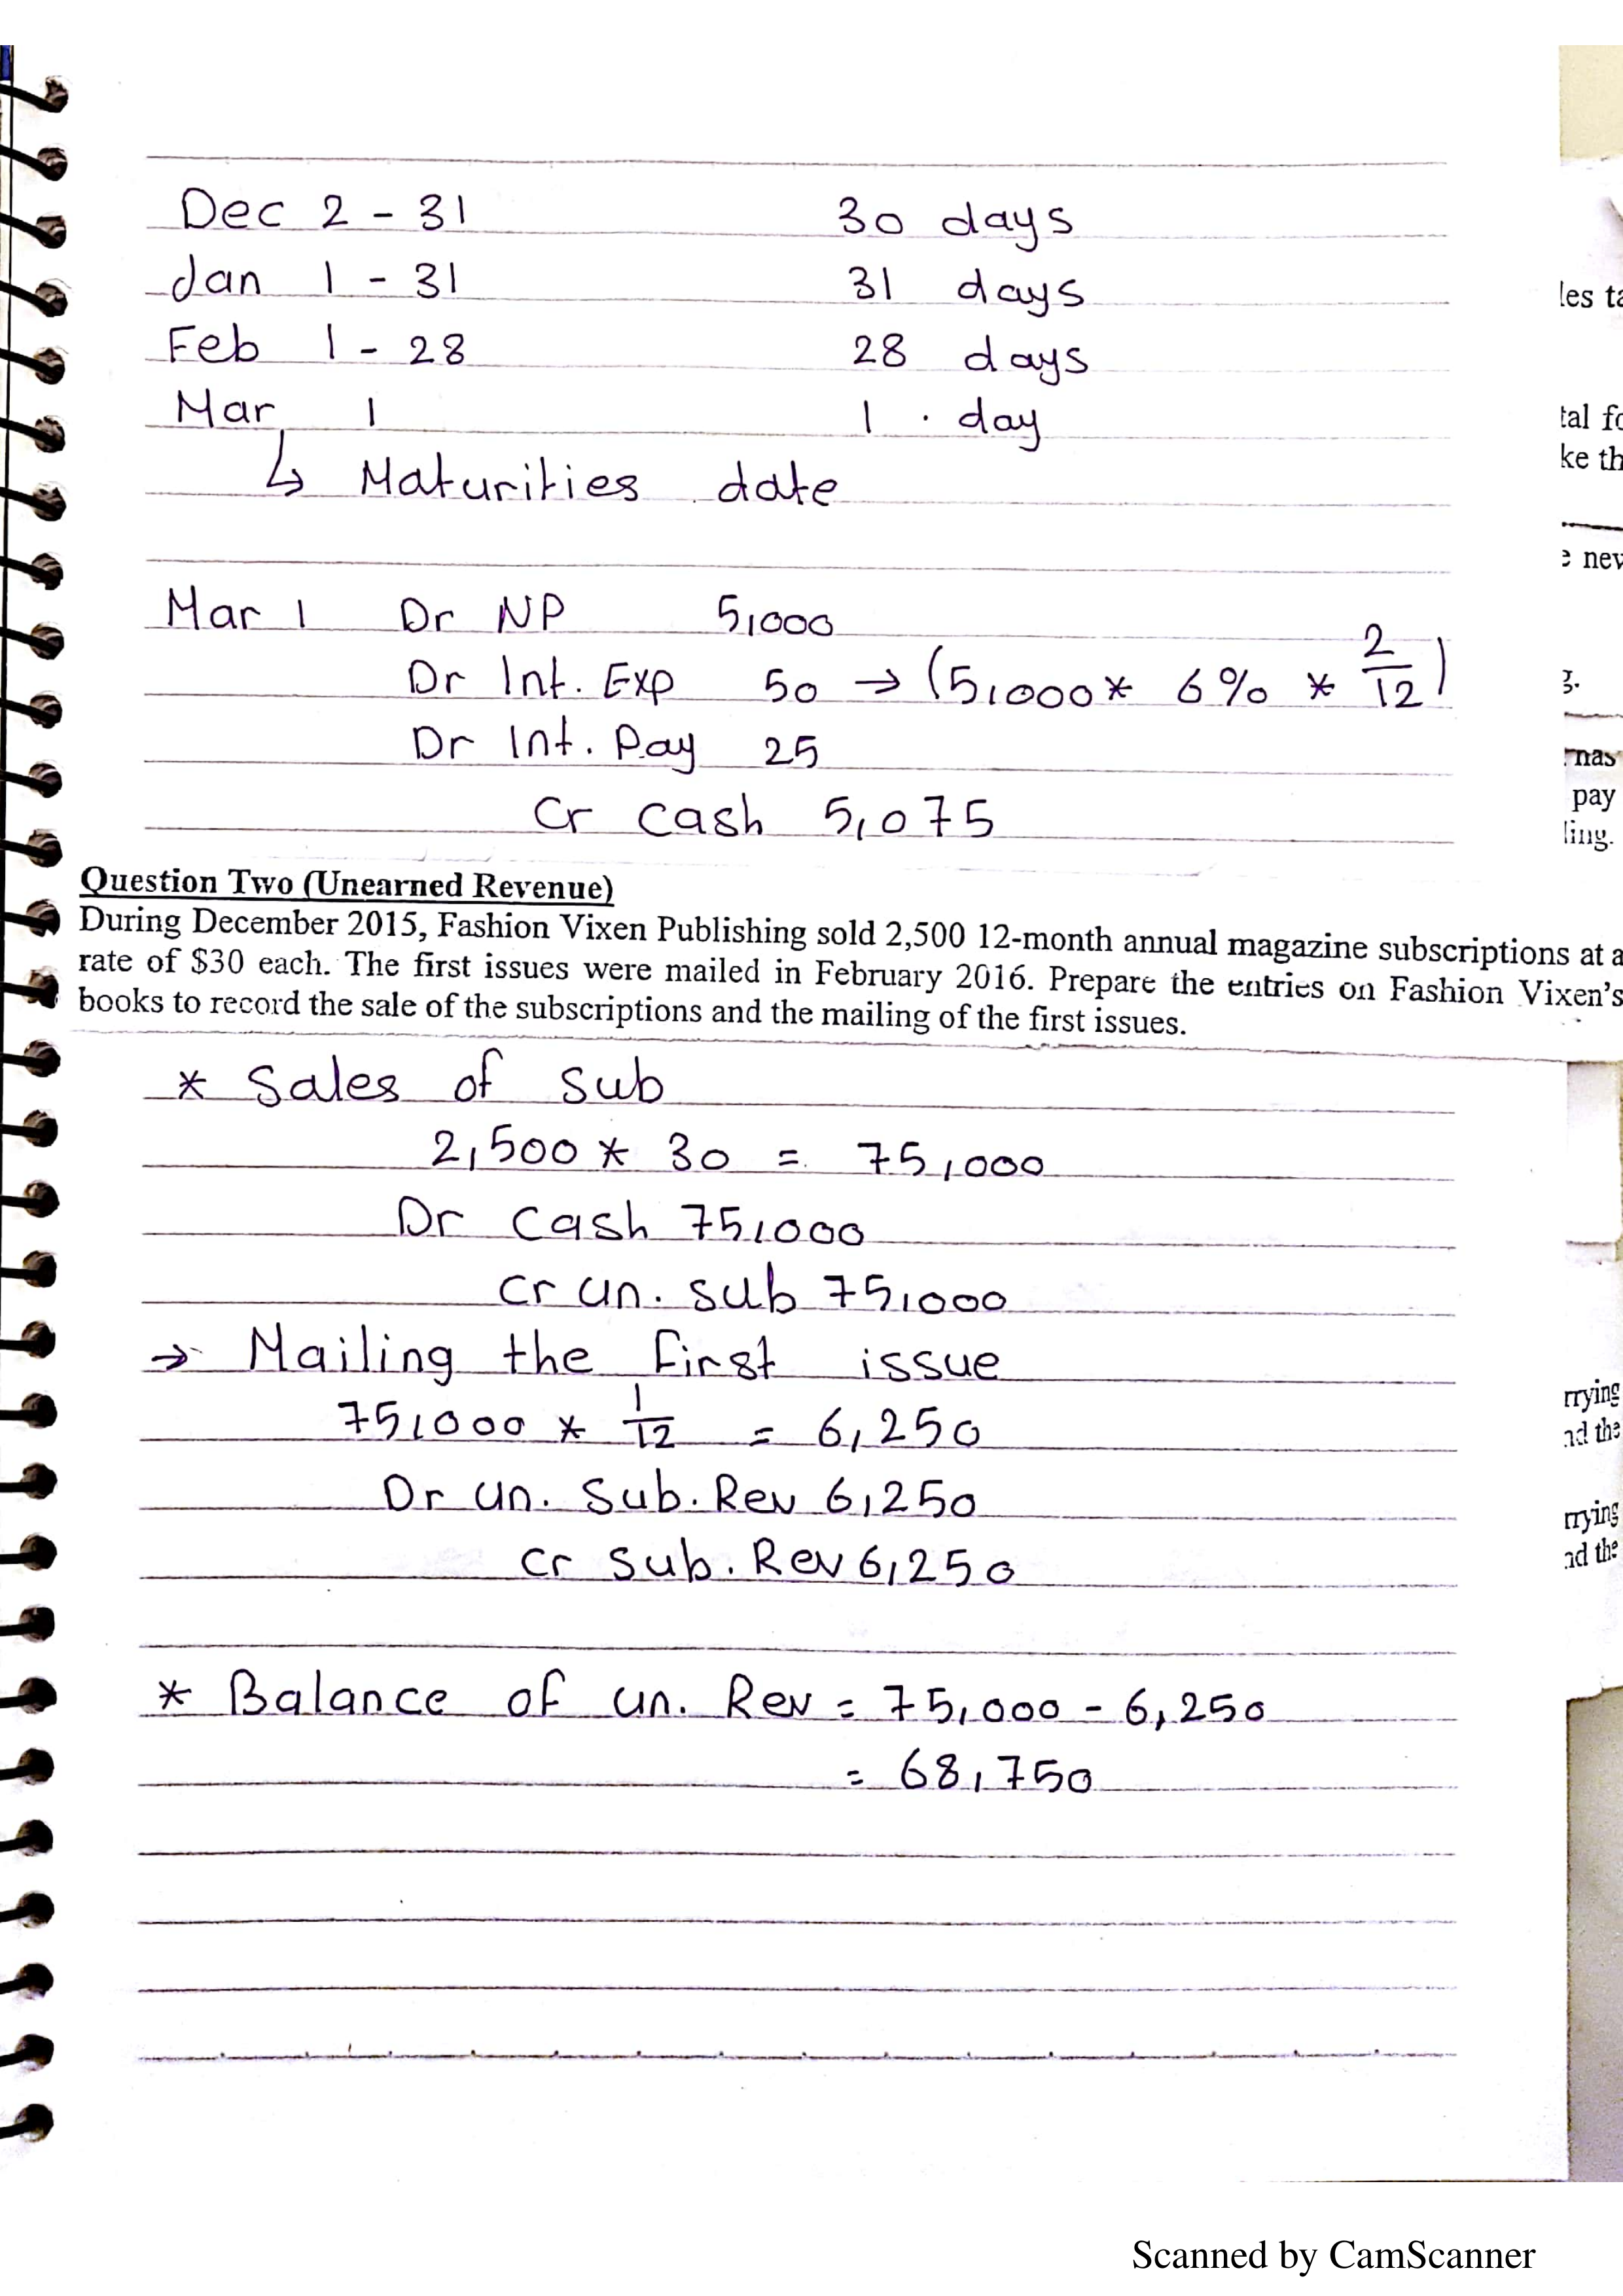 Dec 2 - 31 30 days
Jan 1 - 31 31 days
Feb 1 - 28 28 days
Mar 1 1 day
↳ Maturities date
Mar 1 Dr NP 5,000
Dr Int. Exp 50 → (5,000 * 6% * 2/12)
Dr Int. Pay 25
Cr Cash 5,075
Question Two (Unearned Revenue)
During December 2015, Fashion Vixen Publishing sold 2,500 12-month annual magazine subscriptions at a
rate of $30 each. The first issues were mailed in February 2016. Prepare the entries on Fashion Vixen's
books to record the sale of the subscriptions and the mailing of the first issues.
* Sales of sub
2,500 * 30 = 75,000
Dr Cash 75,000
Cr un. sub 75,000
→ Mailing the first issue
75,000 * 1/12 = 6,250
Dr un. Sub. Rev 6,250
Cr Sub. Rev 6,250
* Balance of un. Rev = 75,000 - 6,250
= 68,750
les ta
tal fo
ke th
e nev
g.
nas
pay
ling.
rrying
nd the
rrying
nd the
Scanned by CamScanner